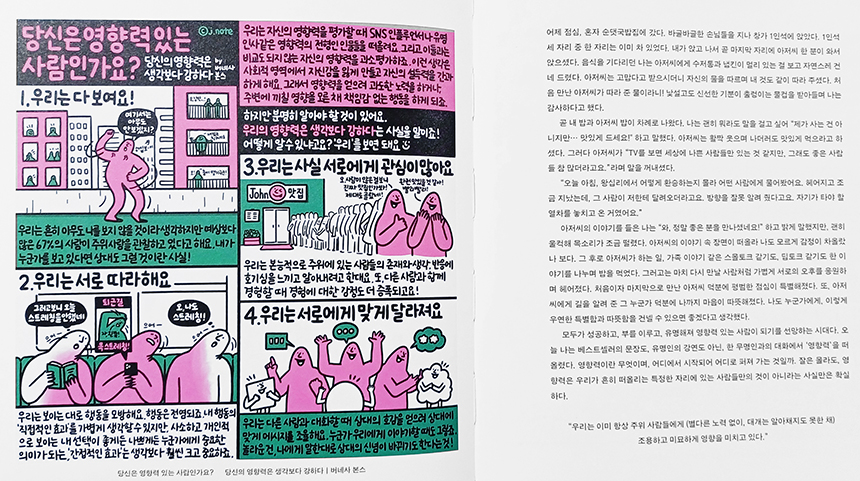 당신은 영향력 있는
사람인가요?
당신의 영향력은
생각보다 강하다
by
버네사
본스
©j.note
우리는 자신의 영향력을 평가할 때 SNS 인플루언서나 유명
인사같은 영향력의 전형인 인물들을 떠올려요. 그리고 이들과는
비교도 되지 않는 자신의 영향력을 과소평가하죠. 이런 생각은
사회적 영역에서 자신감을 잃게 만들고 자신의 설득력을 간과
하게 해요. 그래서 영향력을 얻으려 과도한 노력을 하거나,
주변에 끼칠 영향을 모른 채 책임감 없는 행동을 하게 되죠.
하지만 분명히 알아야 할 것이 있어요.
우리의 영향력은 생각보다 강하다는 사실을 말이죠!
어떻게 알 수 있냐고요? '우리'를 보면 돼요
1. 우리는 다 보여요!
여기서는
아무도
안 보겠지?
우리는 흔히 아무도 나를 보지 않을 것이라 생각하지만 예상보다
많은 67%의 사람이 주위사람을 관찰하고 있다고 해요. 내가
누군가를 보고 있다면 상대도 그럴 것이란 사실!
2. 우리는 서로 따라해요
그러고보니 오늘
스트레칭을 안했네!
퇴근길
목스트레칭!
오, 나도
스트레칭!
우리는 보이는 대로 행동을 모방해요. 행동은 전염되죠. 내 행동의
'직접적인 효과'를 가볍게 생각할 수 있지만, 사소하고 개인적
으로 보이는 내 선택이 좋게든 나쁘게든 누군가에게 중요한
의미가 되는, '간접적인 효과'는 생각보다 훨씬 크고 중요하죠.
3. 우리는 사실 서로에게 관심이 많아요
John 맛집
우리는 본능적으로 주위에 있는 사람들의 존재와 생각, 반응에
호기심을 느끼고 알아내려고 한대요. 또 다른 사람과 함께
경험할 때 경험에 대한 감정도 더 증폭되고요!
4. 우리는 서로에게 맞게 달라져요
우리는 다른 사람과 대화할 때 상대의 호감을 얻으려 상대에
맞게 메시지를 조율해요. 누군가 우리에게 이야기할 때도 그렇죠.
놀라운 건, 나에게 말한대로 상대의 신념이 바뀌기도 한다는 것!
당신은 영향력 있는 사람인가요? 당신의 영향력은 생각보다 강하다 | 버네사 본스
어제 점심, 혼자 순댓국밥집에 갔다. 바글바글한 손님들을 지나 창가 1인석에 앉았다. 1인석
세 자리 중 한 자리는 이미 차 있었다. 내가 앉고 나서 곧 마지막 자리에 아저씨 한 분이 와서
앉으셨다. 음식을 기다리던 나는 아저씨에게 수저통과 냅킨이 멀리 있는 걸 보고 자연스레 건
네 드렸다. 아저씨는 고맙다고 받으시더니 자신의 물을 따르며 내 것도 같이 따라 주셨다. 처
음 만난 아저씨가 따라 준 물이라니! 낯설고도 신선한 기분이 출렁이는 물컵을 받아들며 나는
감사하다고 했다.
곧 내 밥과 아저씨 밥이 차례로 나왔다. 나는 괜히 뭐라도 말을 걸고 싶어 "제가 사는 건 아
니지만… 맛있게 드세요!" 하고 말했다. 아저씨는 활짝 웃으며 나더러도 맛있게 먹으라고 하
셨다. 그러다 아저씨가 "TV를 보면 세상에 나쁜 사람들만 있는 것 같지만, 그래도 좋은 사람
들 참 많더라고요."라며 말을 꺼내셨다.
"오늘 아침, 왕십리에서 어떻게 환승하는지 몰라 어떤 사람에게 물어봤어요. 헤어지고 조
금 지났는데, 그 사람이 저한테 달려오더라고요. 방향을 잘못 알려 줬다고요. 자기가 타야 할
열차를 놓치고 온 거였어요."
아저씨의 이야기를 들은 나는 "와, 정말 좋은 분을 만나셨네요!" 하고 밝게 말했지만, 괜히
울컥해 목소리가 조금 떨렸다. 아저씨의 이야기 속 장면이 떠올라 나도 모르게 감정이 차올랐
나 보다. 그 후로 아저씨가 하는 일, 가족 이야기 같은 스몰토크 같기도, 딥토크 같기도 한 이
야기를 나누며 밥을 먹었다. 그러고는 마치 다시 만날 사람처럼 가볍게 서로의 오후를 응원하
며 헤어졌다. 처음이자 마지막으로 만난 아저씨 덕분에 평범한 점심이 특별해졌다. 또, 아저
씨에게 길을 알려 준 그 누군가 덕분에 나까지 마음이 따뜻해졌다. 나도 누군가에게, 이렇게
우연한 특별함과 따뜻함을 건넬 수 있으면 좋겠다고 생각했다.
모두가 성공하고, 부를 이루고, 유명해져 영향력 있는 사람이 되기를 선망하는 시대다. 오
늘 나는 베스트셀러의 문장도, 유명인의 강연도 아닌, 한 무명인과의 대화에서 '영향력'을 떠
올렸다. 영향력이란 무엇이며, 어디에서 시작되어 어디로 퍼져 가는 것일까. 잘은 몰라도, 영
향력은 우리가 흔히 떠올리는 특정한 자리에 있는 사람들만의 것이 아니라는 사실만은 확실
하다.
"우리는 이미 항상 주위 사람들에게 (별다른 노력 없이, 대개는 알아채지도 못한 채)
조용하고 미묘하게 영향을 미치고 있다."